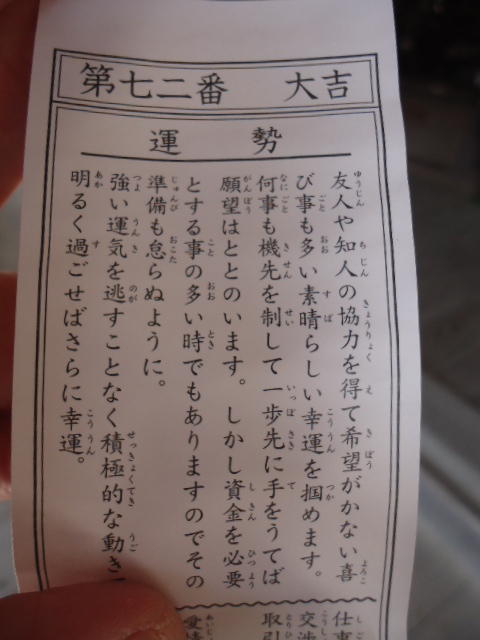 第七二番 大吉
運勢
友人や知人の協力を得て希望がかない喜
び事も多い素晴らしい幸運を掴めます。
何事も機先を制して一歩先に手をうてば
願望はととのいます。しかし資金を必要
とする事の多い時でもありますのでその
準備も怠らぬように。
強い運気を逃すことなく積極的な動き
明るく過ごせばさらに幸運。
仕
交渉
取引
愛情